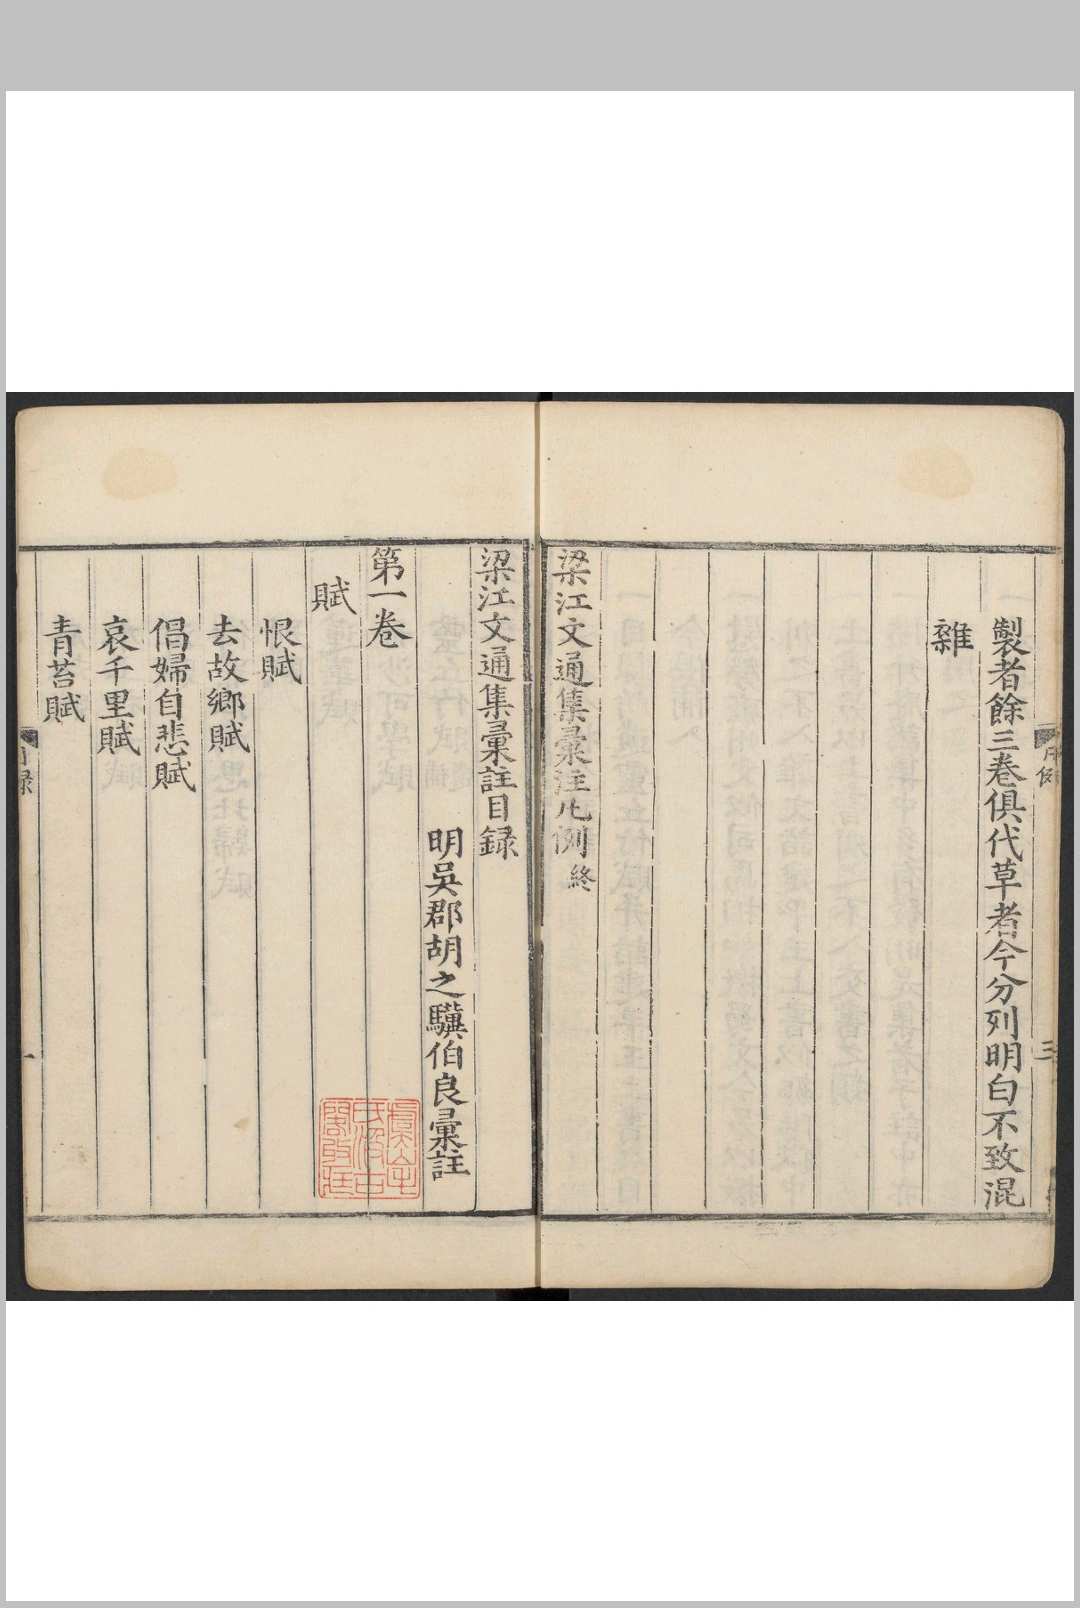 製者餘三卷俱代草者今分列明白不致混
雜
梁江文通集彙注凡例終
梁江文通集彙註目録
明吳郡胡之驥伯良彙註
第一卷
賦
恨賦
去故鄉賦
倡婦自悲賦
哀千里賦
青苔賦